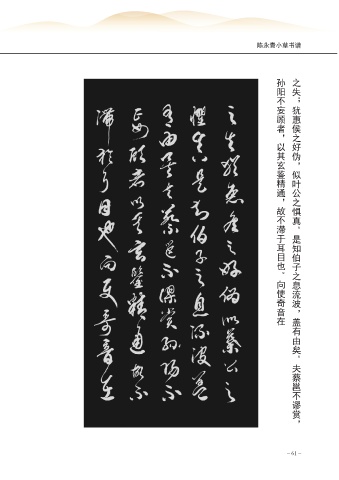 陈永贵小草书谱
之失；犹惠侯之好伪，似叶公之惧真。是知伯子之息流波，盖有由矣。夫蔡邕不谬赏，
孙阳不妄顾者，以其玄鉴精通，故不滞于耳目也。向使奇音在
之失犹惠侯之好伪似叶公之
惧真是知伯子之息流波盖
有由矣夫蔡邕不谬赏孙阳不
妄顾者以其玄鉴精通故不
滞于耳目也向使奇音在
– 61 –